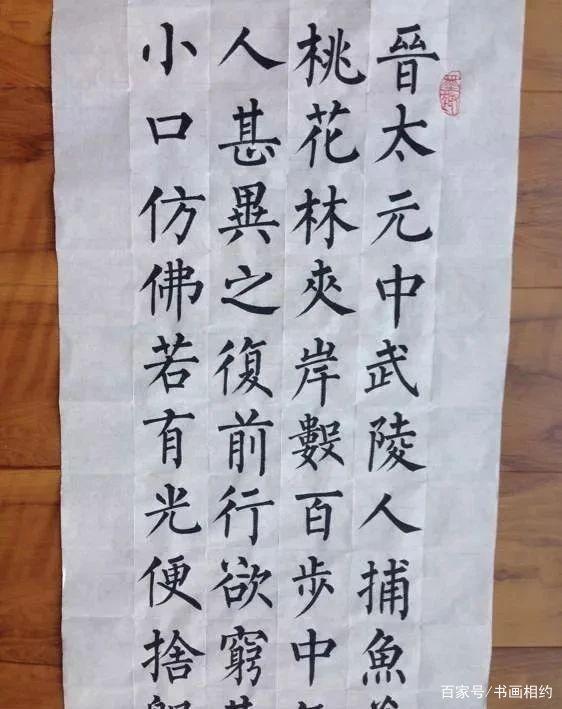 晉太元中武陵人捕魚
桃花林夾岸數百步中
人甚異之復前行欲窮
小口仿佛若有光便捨
百家号/书画相约